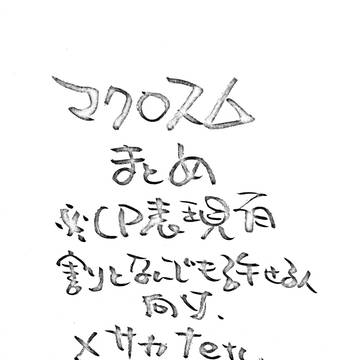 マクロスム
まとめ
※CP表現有
割となんでも許せる人
向け、